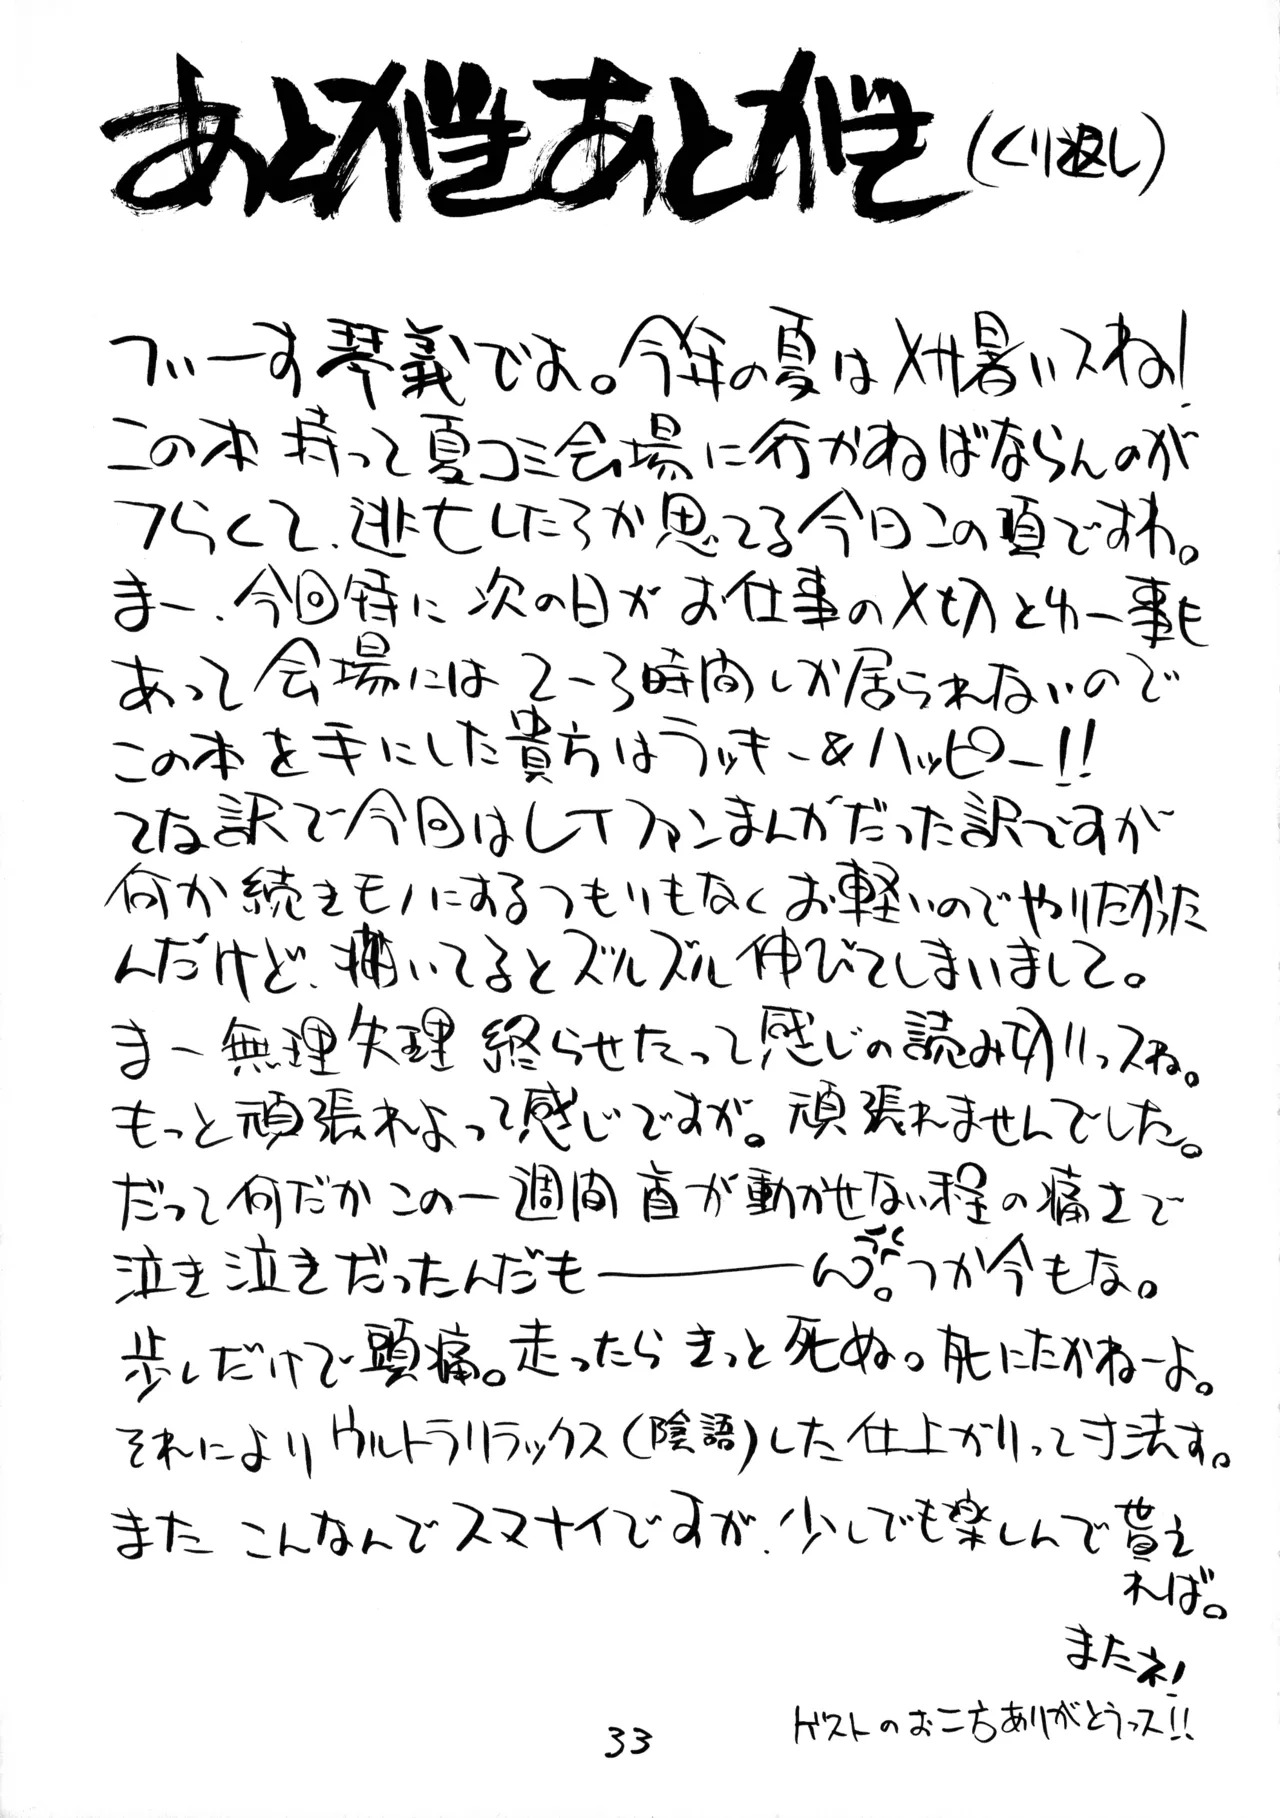 あとがきあとがき(くり返し)
づぃーす琴義でよ。今年の夏はメサ暑いスね!
この本持って夏コミ会場に行かねばならんのが
つらくて、逃亡したろか思てる今日この頃ですわ。
まー、今回特に次の日がお仕事の〆切とゆー事も
あって会場には2〜3時間しか居られないので
この本を手にした貴方はラッキー&ハッピー!!
てな訳で今回はレイファンまんがだった訳ですが
何か続きモノにするつもりもなくお軽いのでやりたかった
んだけど、描いてるとズルズル伸びてしまいまして。
まー無理矢理終らせたって感じの読み切りっスね。
もっと頑張れよって感じですが。頑張れませんでした。
だって何だかこの一週間首が動かせない程の痛さで
泣き泣きだったんだも――――んっ。つか今もな。
歩くだけで頭痛。走ったらきっと死ぬ。死にたかねーよ。
それによりウルトラリラックス(陰語)した仕上がりって寸法す。
またこんなんでスマナイですが、少しでも楽しんで貰え
れば。
またネ!
ゲストのお二方ありがとうっス!!
33